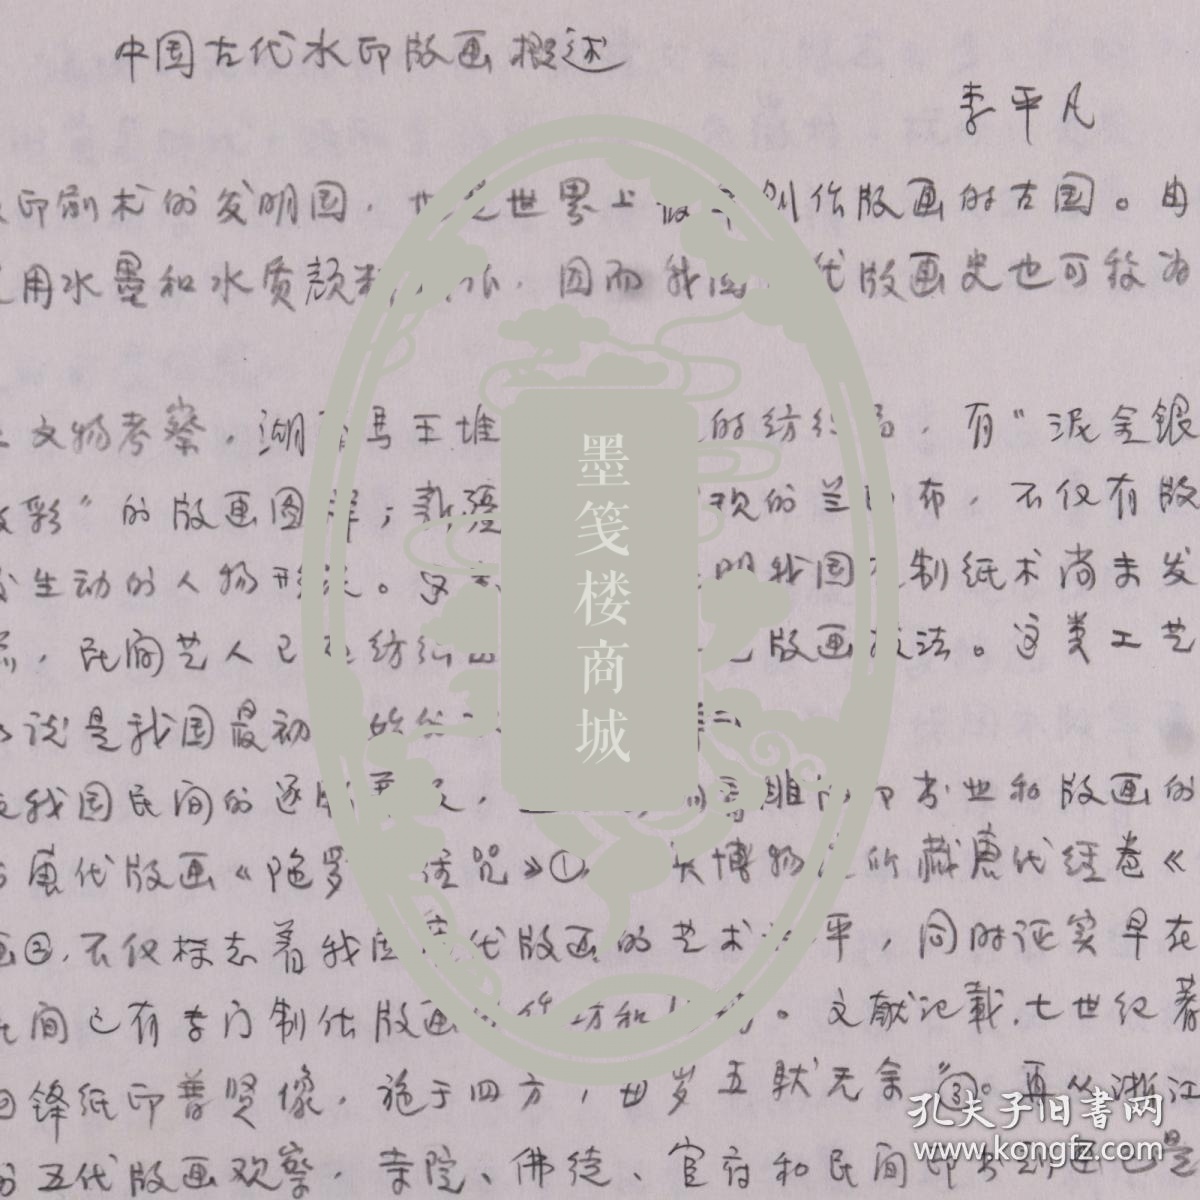 中国古代水印版画概述
李平凡
印刷术的发明国，也是世界上最早创作版画的古国。由
用水墨和水质颜料，因而我国代版画史也可称为
文物考察，湖南马王堆的纺织品，有"泥金银
彩"的版画图样；新疆现的兰印布，不仅有版
生动的人物形象。这明我国在制纸术尚未发
，民间艺人已在纺织版画技法。这类工艺
说是我国最初的
我国民间的逐，印书业和版画的
唐代版画《陀罗经咒》①，大博物馆所藏唐代经卷《
画②，不仅标志着我国唐代版画的艺术水平，同时证实早在
民间已有专门制作版画的作坊和。文献记载，七世纪著
回锋纸印普贤像，施于四方，每岁五驮无余"③。再从浙江
五代版画观察，寺院、佛徒、官府和民间印书刻画已是
墨笺楼商城
孔夫子旧书网
www.kongfz.com